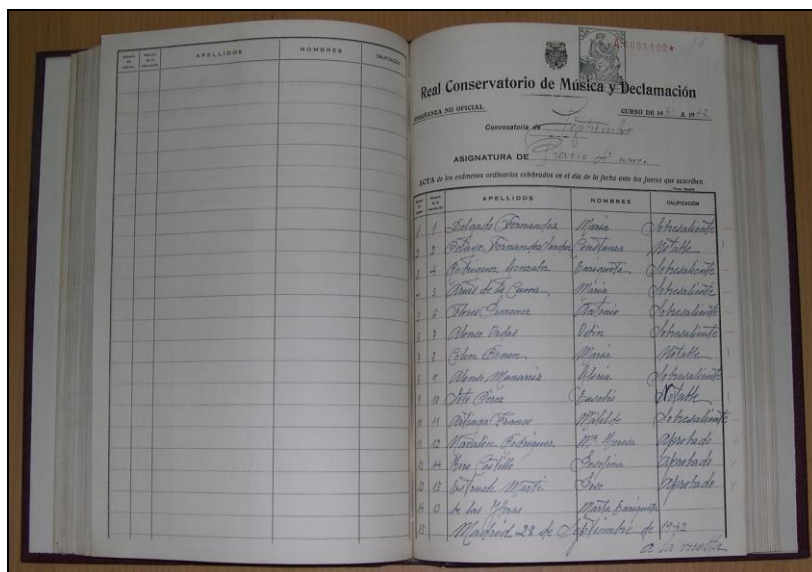 APELLIDOS NOMBRES CALIFICACIÓN
A0081,192
Real Conservatorio de Música y Declamación
ENSEÑANZA NO OFICIAL CURSO DE 19 A 1942
Convocatoria de Septiembre
ASIGNATURA DE Piano
ACTA de los exámenes ordinarios celebrados en el día de la fecha ante los Jueces que suscriben.
APELLIDOS NOMBRES CALIFICACIÓN
1 1 Delgado Fernandez Maria Sobresaliente
2 2 Fernandez Constanza Notable
3 4 Rodriguez Gonzalez Enriqueta Sobresaliente
4 5 Arias de la Cueva Maria Sobresaliente
5 6 Flores Jimenez Antonio Sobresaliente
6 Alonso Sobresaliente
8 Maria Notable
8 9 Alonso Sobresaliente
9 10 Soto Perez Eusebio Notable
10 11 Franco Matilde Sobresaliente
11 12 Rodriguez Mª Teresa Aprobado
12 14 Castillo Josefina Aprobado
13 15 Estruch Marti Jose Aprobado
14 13 de las Heras Maria Enriqueta
15 Madrid 28 de Septiembre de 1942
a la vuelta